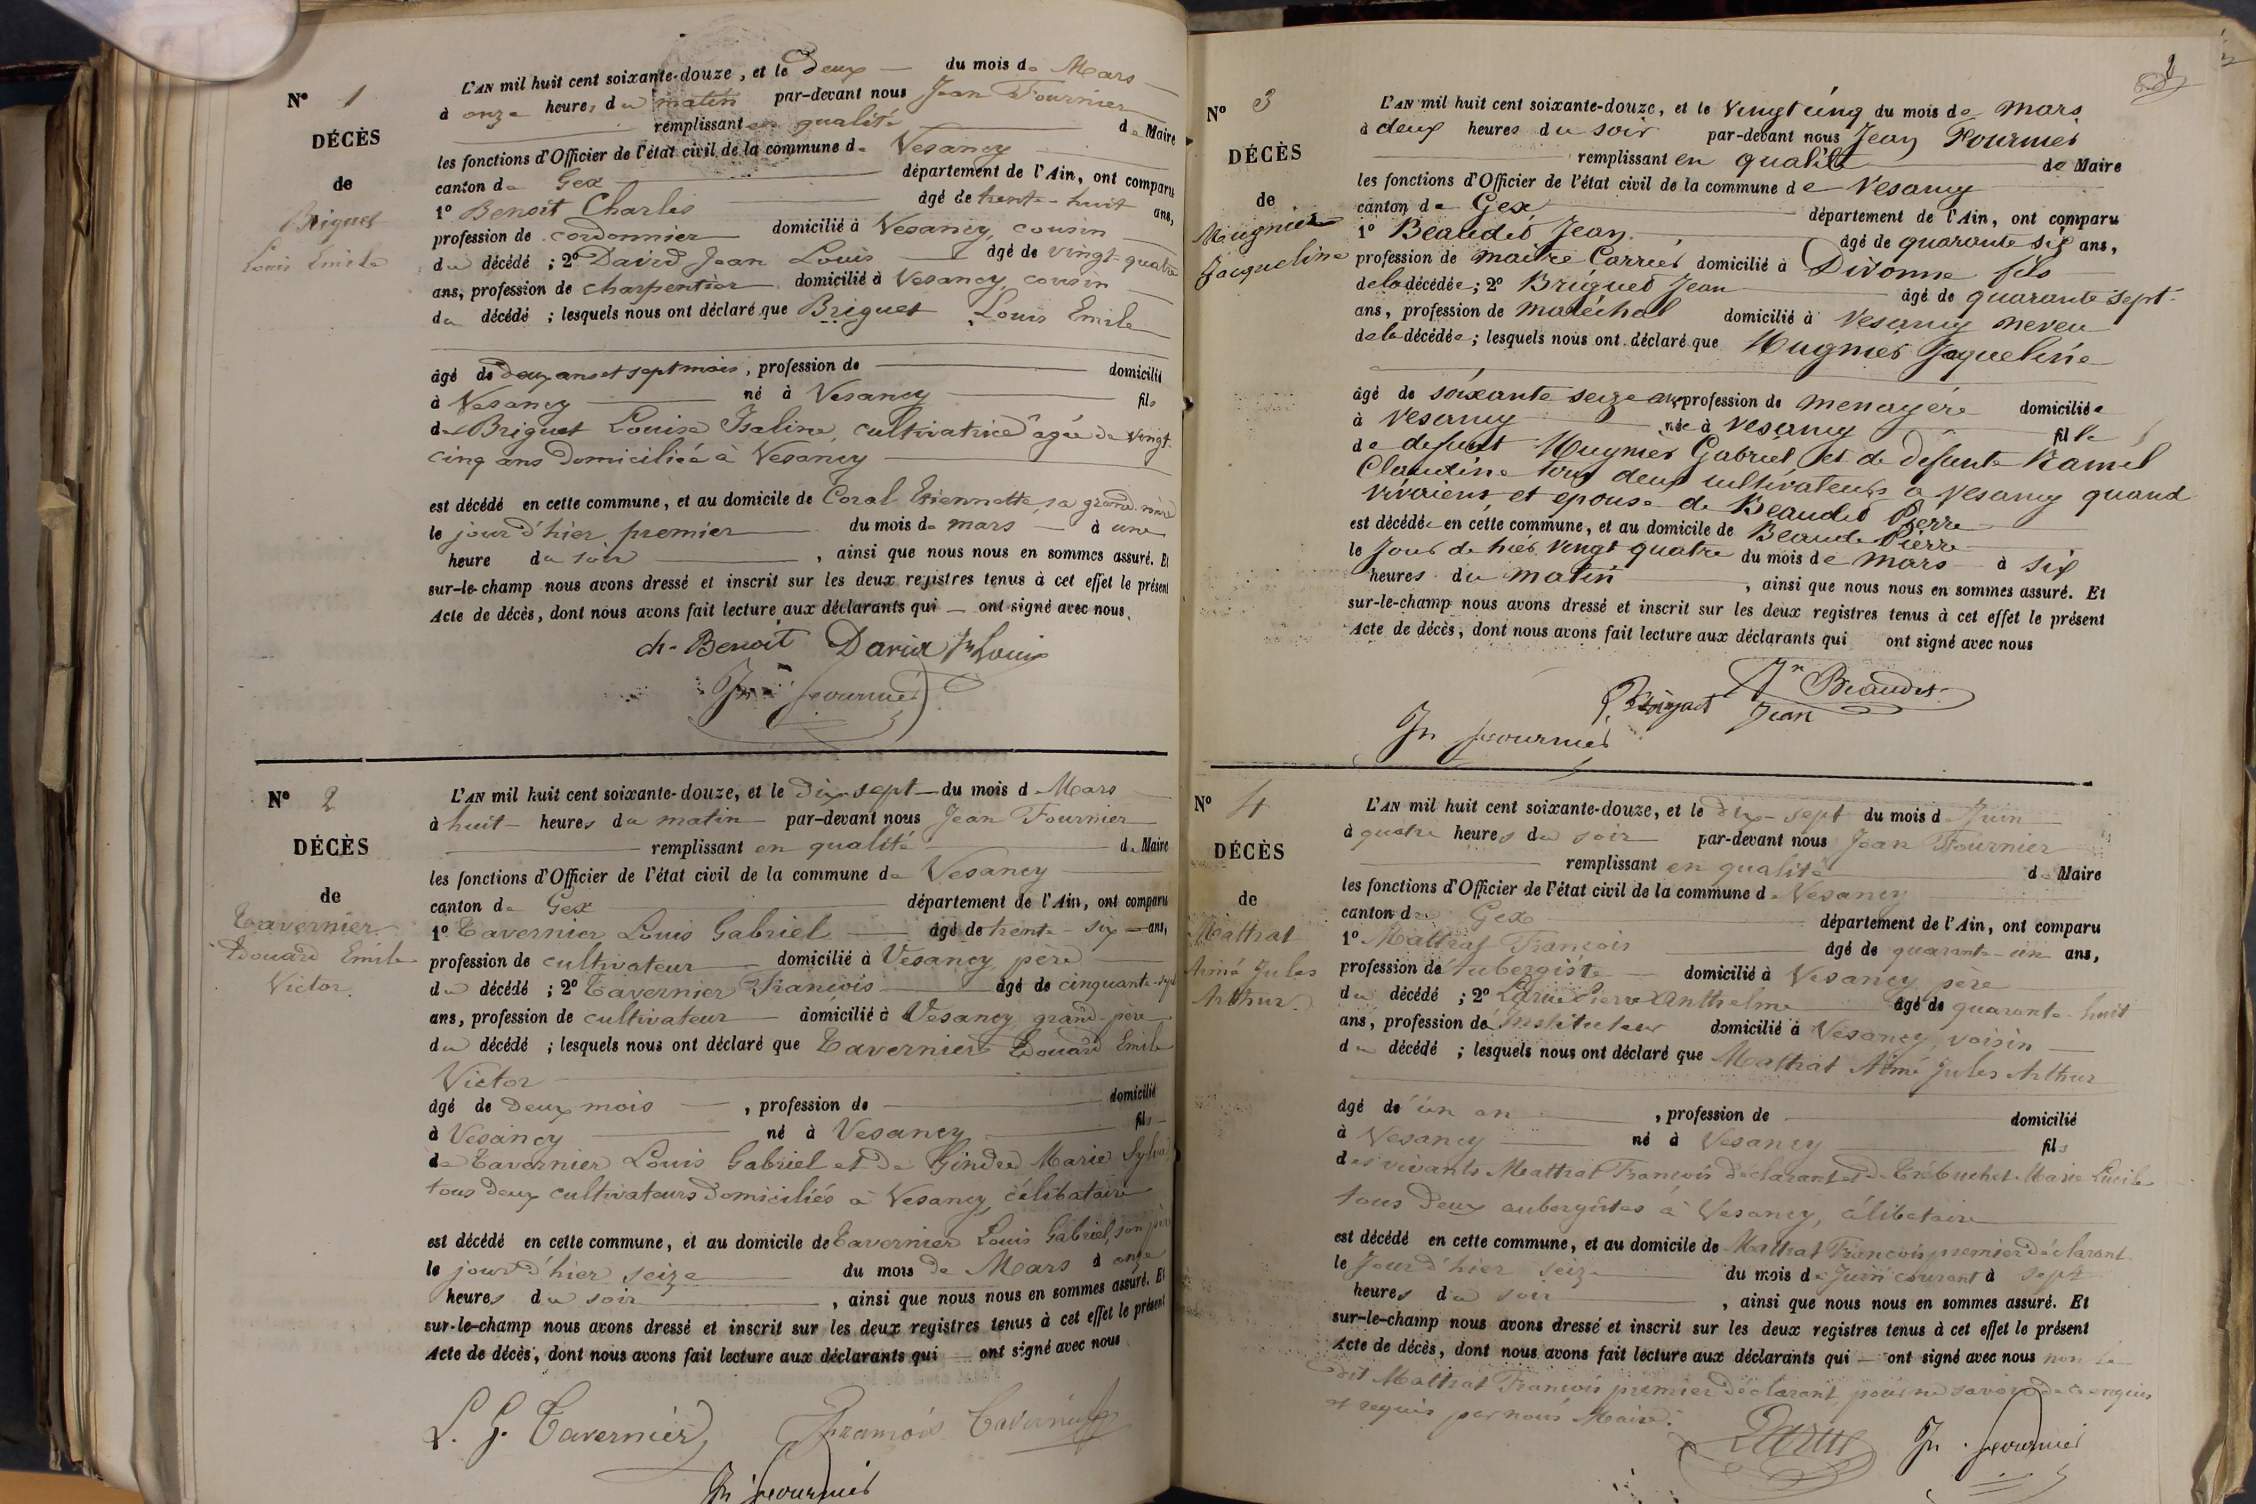 N° 1
DÉCÈS
de
Briguet
Louis Emile
L'AN mil huit cent soixante-douze, et le deux du mois de Mars
à onze heures du matin par-devant nous Jean Fournier
remplissant en qualité de Maire
les fonctions d'Officier de l'état civil de la commune de Vesancy
canton de Gex département de l'Ain, ont comparu
1° Benoit Charles âgé de trente-huit ans,
profession de cordonnier domicilié à Vesancy, cousin
du décédé ; 2° David Jean Louis âgé de vingt-quatre
ans, profession de charpentier domicilié à Vesancy cousin
du décédé ; lesquels nous ont déclaré que Briguet Louis Emile
âgé de deux ans et sept mois, profession de domicilié
à Vesancy né à Vesancy fils
de Briguet Louise Isaline, cultivatrice âgée de vingt-
cinq ans domiciliée à Vesancy
est décédé en cette commune, et au domicile de Coral Etiennette, sa grand-mère
le jour d'hier premier du mois de mars à une
heure du soir , ainsi que nous nous en sommes assuré. Et
sur-le-champ nous avons dressé et inscrit sur les deux registres tenus à cet effet le présent
Acte de décès, dont nous avons fait lecture aux déclarants qui ont signé avec nous.
ch. Benoit David Jn Louis
Jn Fournier
N° 2
DÉCÈS
de
Tavernier
Edouard Emile
Victor.
L'AN mil huit cent soixante-douze, et le dix-sept du mois d Mars
à huit heures du matin par-devant nous Jean Fournier
remplissant en qualité de Maire
les fonctions d'Officier de l'état civil de la commune de Vesancy
canton de Gex département de l'Ain, ont comparu
1° Tavernier Louis Gabriel âgé de trente-six ans,
profession de cultivateur domicilié à Vesancy, père
du décédé ; 2° Tavernier François âgé de cinquante-sept
ans, profession de cultivateur domicilié à Vesancy, grand-père
du décédé ; lesquels nous ont déclaré que Tavernier Edouard Emile
Victor
âgé de deux mois , profession de domicilié
à Vesancy né à Vesancy fils
de Tavernier Louis Gabriel et de Gindre Marie
tous deux cultivateurs domiciliés à Vesancy, célibataire
est décédé en cette commune, et au domicile de Tavernier Louis Gabriel, son père
le jour d'hier seize du mois de Mars à onze
heures du soir , ainsi que nous nous en sommes assuré. Et
sur-le-champ nous avons dressé et inscrit sur les deux registres tenus à cet effet le présent
Acte de décès, dont nous avons fait lecture aux déclarants qui ont signé avec nous
L. G. Tavernier François Tavernier
Jn Fournier
N° 3
DÉCÈS
de
Mugnier
Jacqueline
L'AN mil huit cent soixante-douze, et le vingt cinq du mois de mars
à deux heures du soir par-devant nous Jean Fournier
remplissant en qualité de Maire
les fonctions d'Officier de l'état civil de la commune de Vesancy
canton de Gex département de l'Ain, ont comparu
1° Beaudet Jean âgé de quarante six ans,
profession de maitre Carrier domicilié à Divonne fils
de la décédée ; 2° Briguet Jean âgé de quarante sept
ans, profession de maréchal domicilié à Vesancy neveu
de la décédée ; lesquels nous ont déclaré que Mugnier Jaqueline
âgé de soixante seize ans profession de menagére domiciliée
à Vesancy née à Vesancy fille
de defunt Mugnier Gabriel et de defunte Ramel
Claudine tous deux cultivateurs a Vesancy quand
vivaient et epouse de Beaudet Pierre
est décédée en cette commune, et au domicile de Beaudet Pierre
le Jour de hier vingt quatre du mois de mars à six
heures du matin , ainsi que nous nous en sommes assuré. Et
sur-le-champ nous avons dressé et inscrit sur les deux registres tenus à cet effet le présent
Acte de décès, dont nous avons fait lecture aux déclarants qui ont signé avec nous
Jn Beaudet
Jean
Jn Fournier
N° 4
DÉCÈS
de
Mattrat
Aimé Jules
Arthur.
L'AN mil huit cent soixante-douze, et le dix-sept du mois d Juin
à quatre heures du soir par-devant nous Jean Fournier
remplissant en qualité de Maire
les fonctions d'Officier de l'état civil de la commune de Vesancy
canton de Gex département de l'Ain, ont comparu
1° Mattrat François âgé de quarante-un ans,
profession d'aubergiste domicilié à Vesancy père
du décédé ; 2° Pierre Anthelme âgé de quarante-huit
ans, profession d'Instituteur domicilié à Vesancy, voisin
du décédé ; lesquels nous ont déclaré que Mattrat Aimé Jules Arthur
âgé d'un an , profession de domicilié
à Vesancy né à Vesancy fils
des vivants Mattrat François déclarant et de Trébuchet Marie Lucile
tous deux aubergistes à Vesancy, célibataire
est décédé en cette commune, et au domicile de Mattrat François premier déclarant
le Jour d'hier seize du mois de Juin courant à sept
heures du soir , ainsi que nous nous en sommes assuré. Et
sur-le-champ nous avons dressé et inscrit sur les deux registres tenus à cet effet le présent
Acte de décès, dont nous avons fait lecture aux déclarants qui ont signé avec nous non le
dit Mattrat François premier déclarant, pour ne savoir de ce enquis
et requis par nous Maire.
Jn Fournier